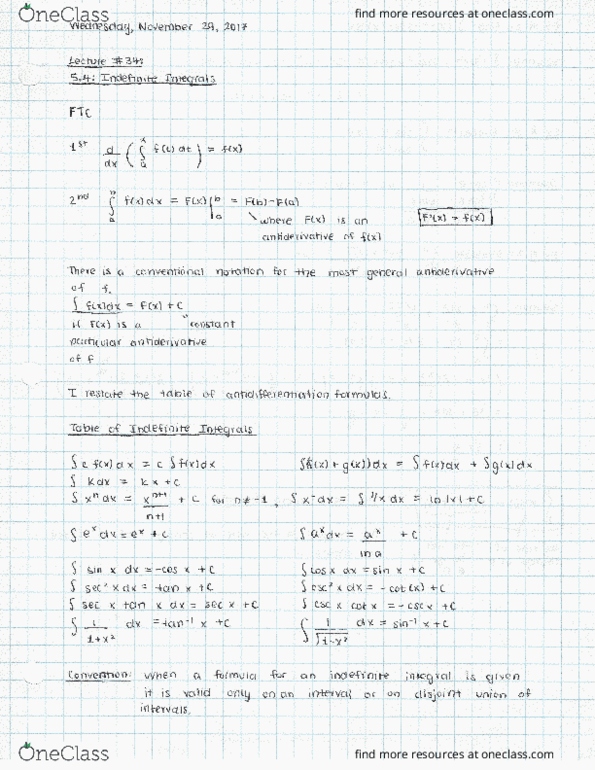 OneClass find more resources at oneclass.com
Wednesday, November 29, 2017
Lecture #34:
5.4: Indefinite Integrals
FTC
1st d/dx ( ∫_a^x f(t) dt ) = f(x)
2nd ∫_a^b f(x) dx = F(x) |_a^b = F(b) - F(a)
where F(x) is an F'(x) = f(x)
antiderivative of f(x)
There is a conventional notation for the most general antiderivative
of f.
∫ f(x) dx = F(x) + C
if F(x) is a constant
particular antiderivative
of f
I restate the table of antidifferentiation formulas.
Table of Indefinite Integrals
∫ c f(x) dx = c ∫ f(x) dx ∫ (f(x) + g(x)) dx = ∫ f(x) dx + ∫ g(x) dx
∫ k dx = kx + C
∫ x^n dx = x^(n+1)/(n+1) + C for n ≠ -1, ∫ x⁻ dx = ∫ 1/x dx = ln |x| + C
∫ e^x dx = e^x + C ∫ a^x dx = a^x/ln a + C
∫ sin x dx = -cos x + C ∫ cos x dx = sin x + C
∫ sec² x dx = tan x + C ∫ csc² x dx = -cot(x) + C
∫ sec x tan x dx = sec x + C ∫ csc x cot x = -csc x + C
∫ 1/(1+x²) dx = tan⁻¹ x + C ∫ 1/√(1-x²) dx = sin⁻¹ x + C
Convention: When a formula for an indefinite integral is given
it is valid only on an interval or on disjoint union of
intervals.
OneClass find more resources at oneclass.com